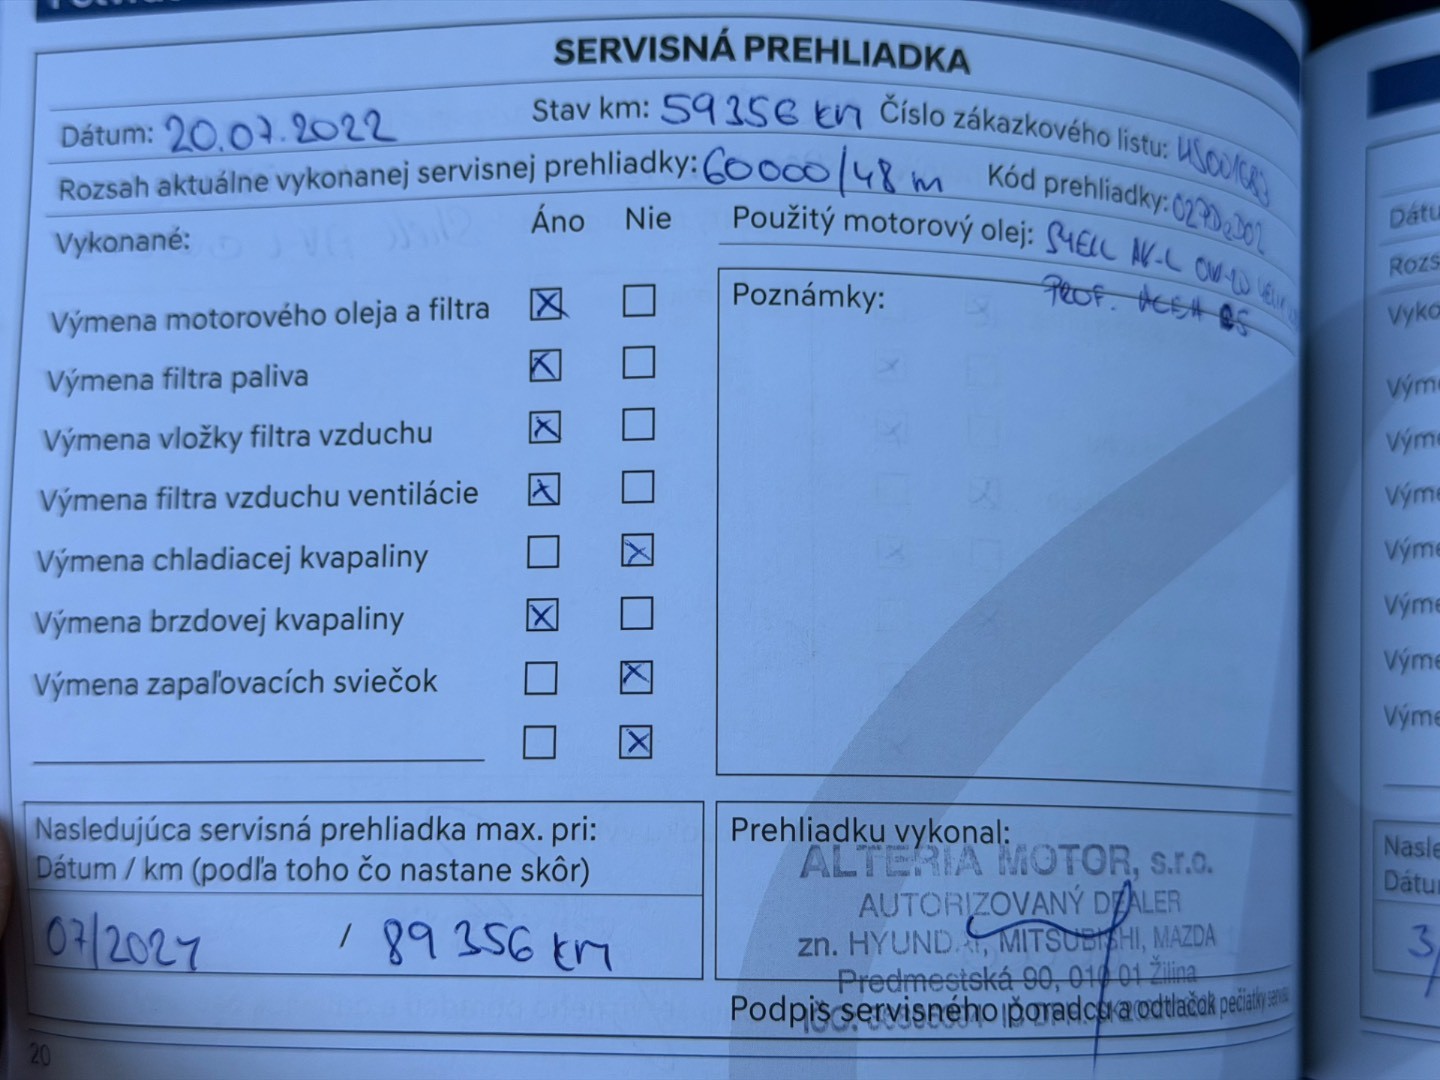 SERVISNÁ PREHLIADKA
Dátum: 20.07.2022 Stav km: 59356 km Číslo zákazkového listu:
Rozsah aktuálne vykonanej servisnej prehliadky: 60000/48 m Kód prehliadky:
Vykonané: Áno Nie Použitý motorový olej: SHELL AV-L 0W-20
PROF. ACEA C5
Poznámky:
Výmena motorového oleja a filtra
Výmena filtra paliva
Výmena vložky filtra vzduchu
Výmena filtra vzduchu ventilácie
Výmena chladiacej kvapaliny
Výmena brzdovej kvapaliny
Výmena zapaľovacích sviečok
Nasledujúca servisná prehliadka max. pri:
Dátum / km (podľa toho čo nastane skôr)
07/2024 / 89 356 km
Prehliadku vykonal:
ALTERIA MOTOR, s.r.o.
AUTORIZOVANÝ DEALER
zn. HYUNDAI, MITSUBISHI, MAZDA
Predmestská 90, 010 01 Žilina
Podpis servisného poradcu a odtlačok pečiatky servisu
20
Dátu
Rozs
Vyko
Výme
Výme
Výme
Výme
Výme
Výme
Výme
Nasle
Dátu
3/